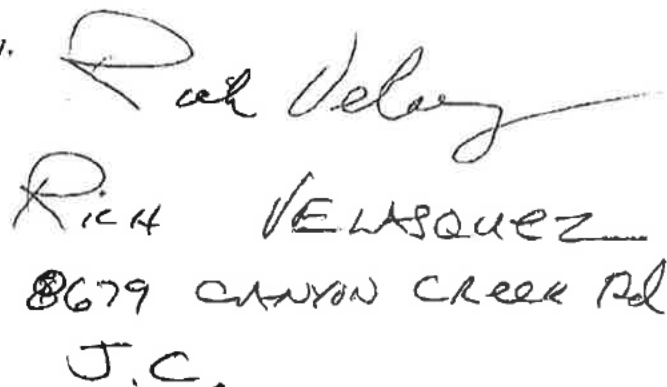 Rich Velasquez
Rich VELASQUEZ
8679 CANYON CREEK Rd
J.C.